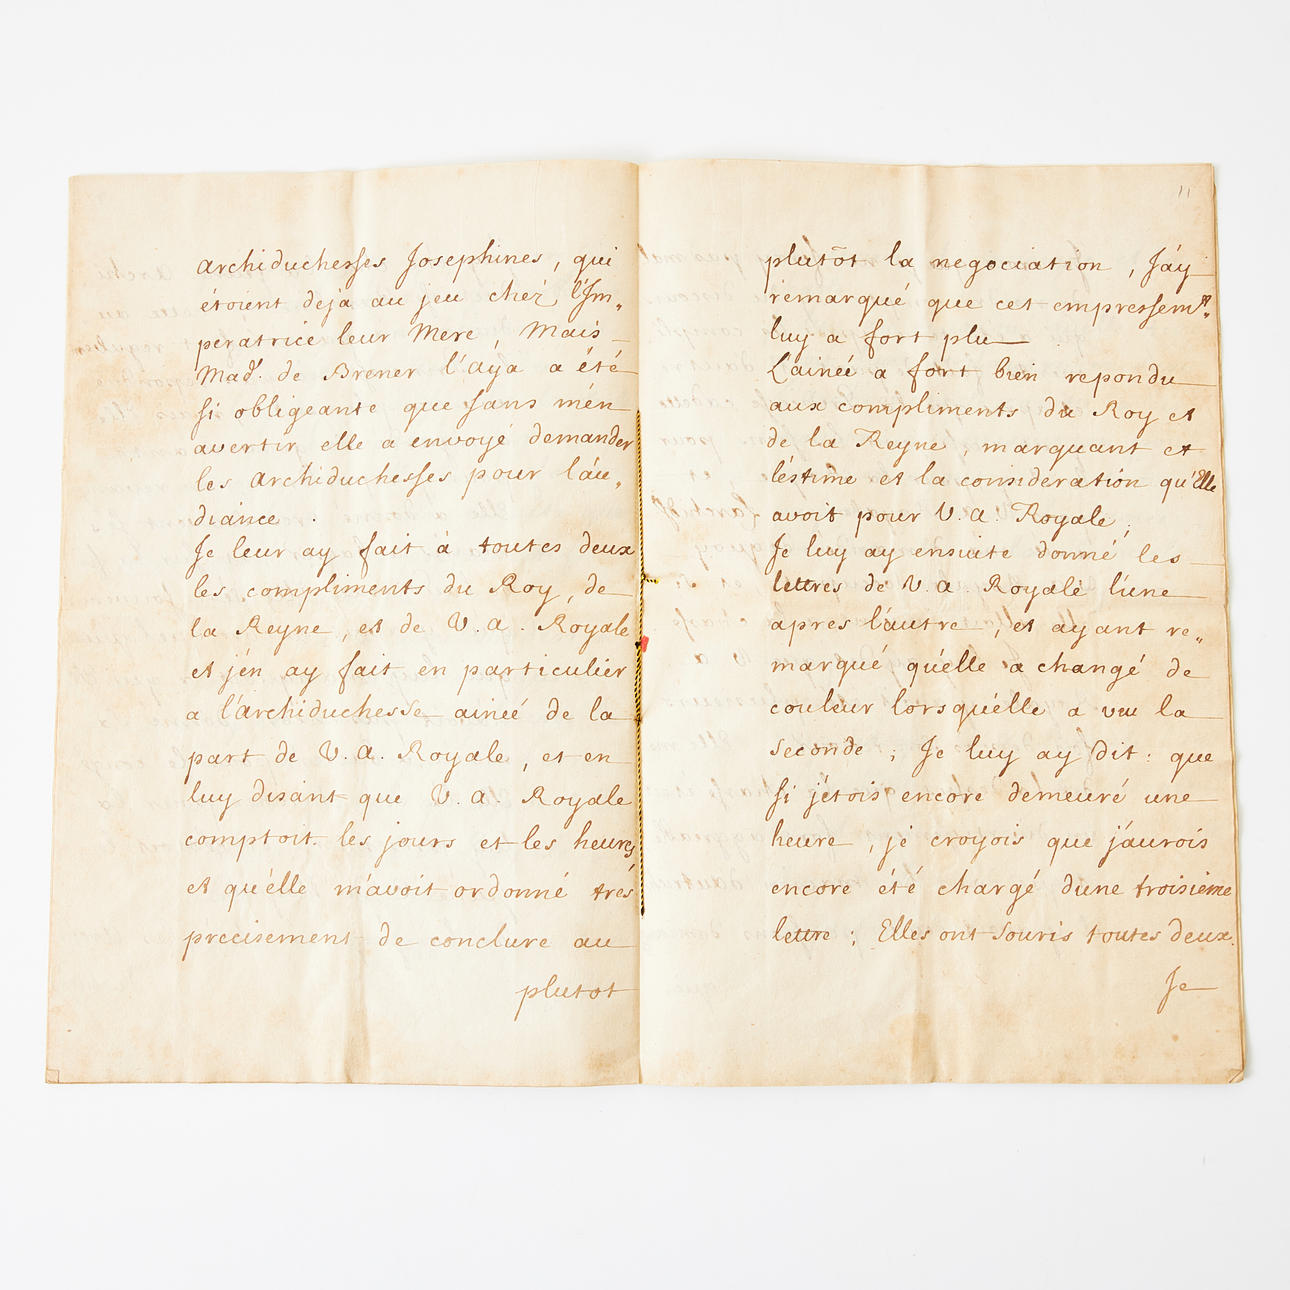 archiduchesses Josephines, qui
étoient deja au jeu chez l'Im„
peratrice leur Mere, Mais
Mad.e de Brener l'aya a été
si obligeante que sans m'en
avertir elle a envoyé demander
les archiduchesses pour l'au„
diance.
Je leur ay fait à toutes deux
les compliments du Roy, de
la Reyne, et de V. a. Royale
et j'en ay fait en particulier
a l'archiduchesse ainée de la
part de V. a. Royale, et en
luy disant que V. a. Royale
comptoit les jours et les heures,
et qu'elle m'avoit ordonné trés
precisement de conclure au
plutot
11
plutôt la negociation, J'ay
remarqué que cet empressemt„
luy a fort plu
L'ainée a fort bien repondu
aux compliments du Roy et
de la Reyne, marquant et
l'éstime et la consideration qu'Elle
avoit pour V. a. Royale,
Je luy ay ensuite donné les
lettres de V. a. Royale l'une
apres l'autre, et ayant re„
marqué qu'elle a changé de
couleur lorsqu'elle a vu la
seconde; Je luy ay dit: que
si j'etois encore demeuré une
heure, je croyois que j'aurois
encore été chargé d'une troisième
lettre; Elles ont souris toutes deux.
Je